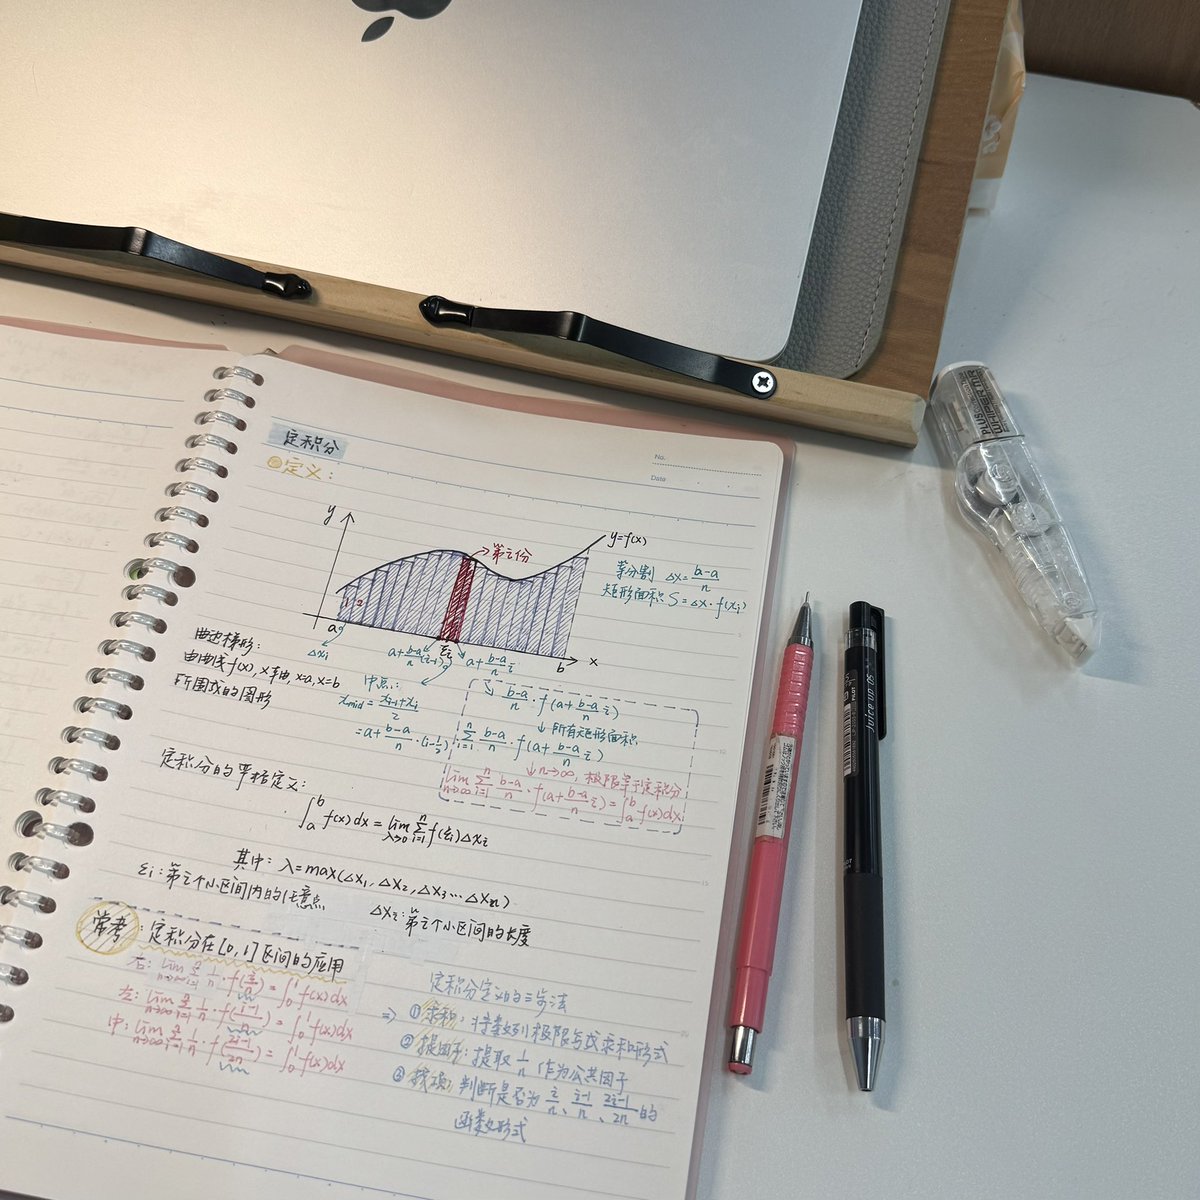 定积分
No.
Date
①定义:
y
y=f(x)
第i份
等分割 Δx=\frac{b-a}{n}
矩形面积 S=Δx·f(x_i)
a
b
x
Δx_i
a+\frac{b-a}{n}(i-1)
ξ_i
a+\frac{b-a}{n}i
曲边梯形:
由曲线f(x), x轴, x=a, x=b
所围成的图形
中点:
x_{mid}=\frac{x_{i-1}+x_i}{2}
=a+\frac{b-a}{n}·(i-\frac{1}{2})
\frac{b-a}{n}·f(a+\frac{b-a}{n}i)
↓所有矩形面积
\sum_{i=1}^{n}\frac{b-a}{n}·f(a+\frac{b-a}{n}i)
↓n→∞, 极限等于定积分
\lim_{n→∞}\sum_{i=1}^{n}\frac{b-a}{n}·f(a+\frac{b-a}{n}i)=∫_a^b f(x)dx
定积分的严格定义:
∫_a^b f(x)dx=\lim_{λ→0}\sum_{i=1}^{n}f(ξ_i)Δx_i
其中: λ=max(Δx_1, Δx_2, Δx_3…Δx_n)
ξ_i:第i个小区间内的任意点
Δx_i:第i个小区间的长度
常考:定积分在[0,1]区间的应用
右: \lim_{n→∞}\sum_{i=1}^{n}\frac{1}{n}·f(\frac{i}{n})=∫_0^1 f(x)dx
左: \lim_{n→∞}\sum_{i=1}^{n}\frac{1}{n}·f(\frac{i-1}{n})=∫_0^1 f(x)dx
中: \lim_{n→∞}\sum_{i=1}^{n}\frac{1}{n}·f(\frac{2i-1}{2n})=∫_0^1 f(x)dx
定积分定义的三步法
⇒ ①求和:将数列极限写成求和形式
②提因子:提取\frac{1}{n}作为公共因子
③找项:判断是否为\frac{i}{n}、\frac{i-1}{n}、\frac{2i-1}{2n}的
函数形式
PLUS
WHIPER MR
PILOT
Juice up 05